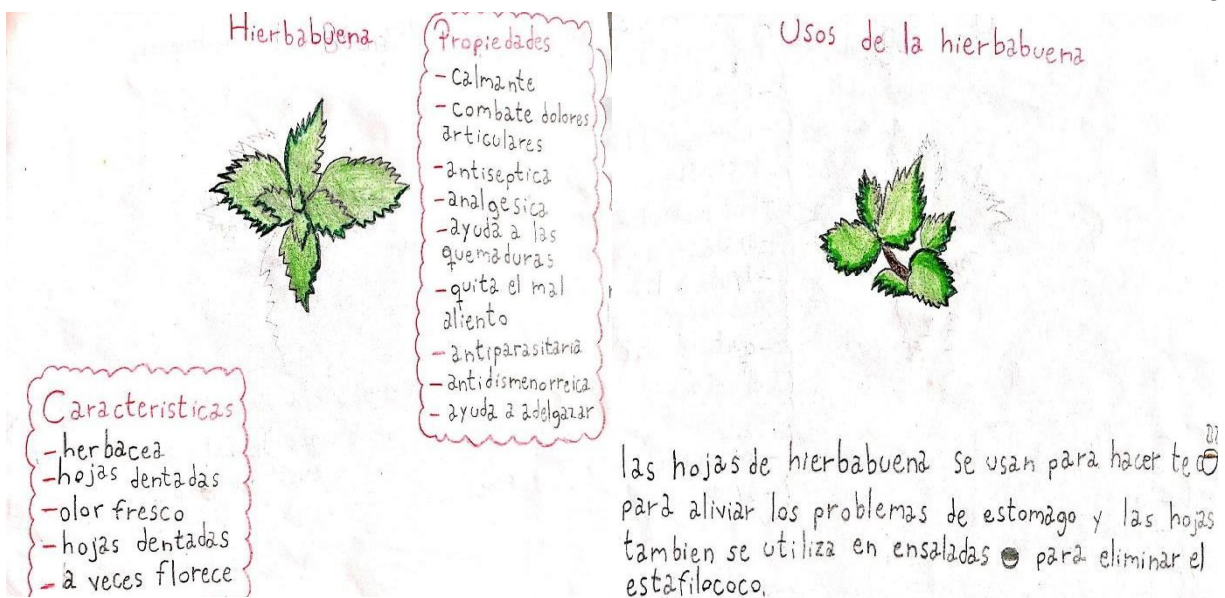 Hierbabuena
Propiedades
- Calmante
- combate dolores
articulares
- antiseptica
- analgesica
- ayuda a las
quemaduras
- quita el mal
aliento
- antiparasitaria
- antidismenorreica
- ayuda a adelgazar
Caracteristicas
- herbacea
- hojas dentadas
- olor fresco
- hojas dentadas
- a veces florece
Usos de la hierbabuena
las hojas de hierbabuena se usan para hacer te
para aliviar los problemas de estomago y las hojas
tambien se utiliza en ensaladas para eliminar el
estafilococo.